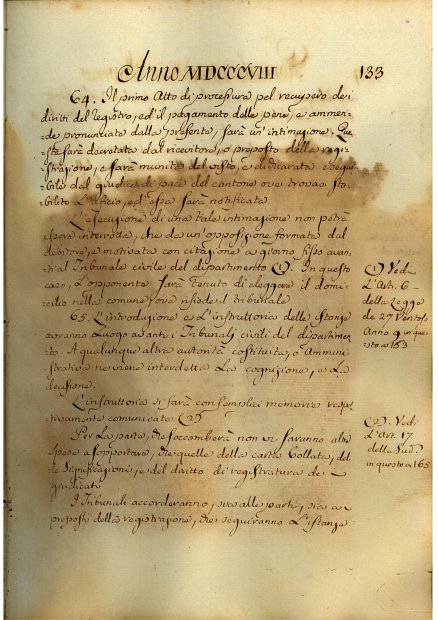 Anno MDCCCVIII 133
64. Il primo Atto di processura pel recupero dei
diritti del registro, ed il pagamento delle pene, e ammen-
de pronunciate dalla presente, sarà un' intimazione. Que-
sta sarà decretata dal ricevitore, o preposto della regi-
strazione, e sarà munita del visto, e dichiarata esegui-
bile dal giudice di pace del cantone ove trovasi sta-
bilito l'uficio, ed essa sarà notificata.
L'esecuzione di una tale intimazione non potrà
essere interrotta, che da un'opposizione formata dal
debitore, e motivata con citazione a giorno fisso avan-
ti al Tribunale civile del dipartimento (1). In questo
caso, l'opponente sarà tenuto di eleggere il domi-
cilio nella comune, ove risiede il tribunale
65. L'introduzione e l'instruttoria delle istanze
avranno luogo avanti i Tribunali civili del dipartimen-
to. A qualunque altra autorità costituita, o Ammini-
strativa ne viene interdetta la cognizione, e la
decisione.
L'instruttoria si farà con semplici memorie respet-
tivamente comunicate (2)
Per la parte, che soccomberà non vi saranno altre
spese a sopportare, che quelle della carta bollata, del-
le significazioni, e del diritto di registratura dei
giudicati
I Tribunali accorderanno, sia alle parti, sia ai
preposti della registrazione, che seguiranno l'istanze
(1) Vedi
l'Art. 6
della Legge
de 27 Ventoso
Anno 9 in que-
sto a 163
(2) Vedi
l'Art. 17
della Sud.
in questo a 165